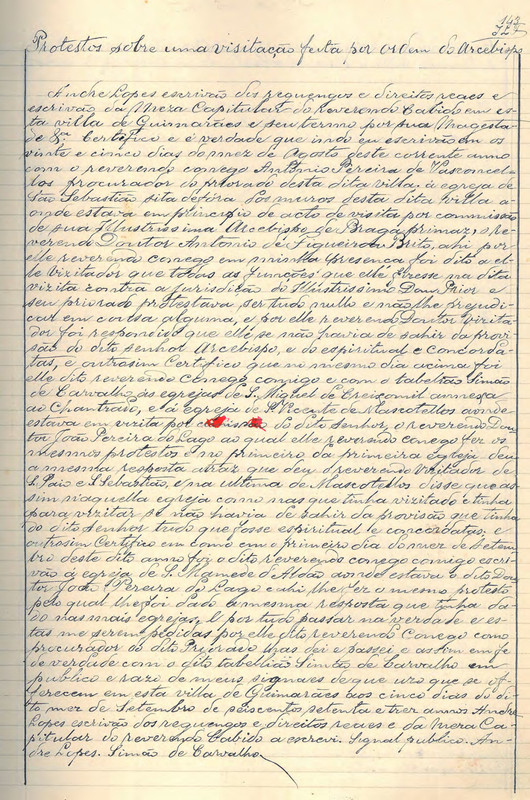 143
127
Protestos sobre uma visitação feita por ordem do Arcebispo
André Lopes escrivão dos reguengos e direitos reaes e
escrivão da Meza Capitular do Reverendo Cabido em es-
ta villa de Guimarães e seu termo por sua Magesta-
de &ª Certifico e é verdade que indo eu escrivão em os
vinte e cinco dias do mez de Agosto deste corrente anno
com o reverendo conego Antonio Pereira de Vasconcel-
los procurador do priorado desta dita villa, á egreja de
São Sebastião sita defóra dos muros desta dita villa a-
onde estava em principio de acto de visita por commissão
de sua Illustrissima Arcebispo de Braga primaz, o re-
verendo Doutor Antonio de Figueiroa Brito, ahi por
elle reverendo conego em minha presença foi dito a el-
le Vizitador que todas as funcções que elle fizesse na dita
vizita contra a jurisdição do Illustrissimo Dom Prior e
seu priorado protestava ser tudo nullo e não lhe prejudi-
car em cousa alguma, e por elle reverendo Doutor vizita-
dor foi respondido que elle se não havia de sahir da provi-
são do dito senhor Arcebispo, e do espiritual e concorda-
tas, e outrosim Certifico que no mesmo dia acima foi
elle dito reverendo conego comigo e com o tabelião Simão
de Carvalho ás egrejas de S. Miguel de Creixomil annexa
ao Chantrado, e á egreja de S. Vicente de Mascotellos aonde
estava em vizita por do dito Senhor, o reverendo Dou-
tor João Pereira do Lago ao qual elle reverendo conego fez os
mesmos protestos e no primeiro da primeira egreja deu
a mesma resposta atraz que deu o reverendo Vizitador de
S. Paio e S. Sebastião, e na ultima de Mascotellos disse que as-
sim n'aquella egreja como nas que tinha vizitado e tinha
para vizitar se não havia de sahir da provisão que tinha
do dito senhor tudo que fosse espiritual e concordatas, e
outrosim Certifico em como em o primeiro dia do mez de Setem-
bro deste dito anno foi o dito reverendo conego comigo escri-
vão á egreja de S. Mamede d'Aldão aonde estava o dito Dou-
tor João Pereira do Lago e ahi lhe fez o mesmo protesto
pelo qual lhe foi dado a mesma resposta que tinha da-
do nas mais egrejas. E por tudo passar na verdade e es-
tas me serem pedidas por elle dito reverendo Conego como
procurador do dito Priorado lhas dei e passei e assim em fé
de verdade com o dito tabelião Simão de Carvalho em
publico e razo de meus signaes de que uzo que se of-
ferecem em esta villa de Guimarães aos cinco dias do di-
to mez de Setembro de seiscentos setenta e trez annos André
Lopes escrivão dos reguengos e direitos reaes e da Meza Ca-
pitular do reverendo Cabido a escrevi. Signal publico. An-
dré Lopes. Simão de Carvalho